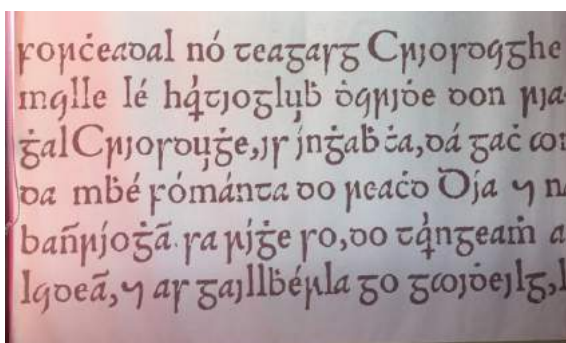 forċeadal nó teagasg Criosdaighe
maille lé hairtiogluiḃ ḋairiḋe don ria-
ġal Criosduiġe, is ingaḃṫa, dá gaċ aon
da mḃé fómánta do reaċd Dia ⁊ n
bañrioġã sa ríġe so, do tairngeaṁ a
laideã, ⁊ as gaillḃérla go gaoiḋeilg, l